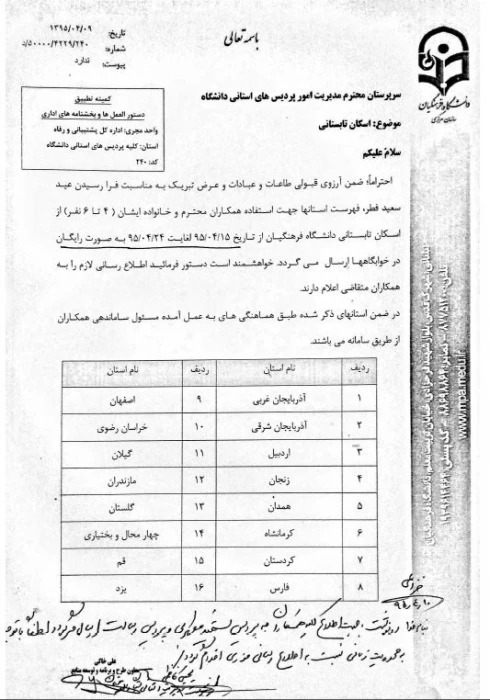 باسمه تعالی
تاریخ: ۱۳۹۵/۰۴/۰۹
شماره: ۵۰۰۰۰/۴۲۲۹/۲۴۰/د
پیوست: ندارد
دانشگاه فرهنگیان
سازمان مرکزی
کمیته تطبیق
دستور العمل ها و بخشنامه های اداری
واحد مجری: اداره کل پشتیبانی و رفاه
استان: کلیه پردیس های استانی دانشگاه
کد: ۲۴۰
سرپرستان محترم مدیریت امور پردیس های استانی دانشگاه
موضوع: اسکان تابستانی
سلام علیکم
احتراماً؛ ضمن آرزوی قبولی طاعات و عبادات و عرض تبریک به مناسبت فرا رسیدن عید
سعید فطر، فهرست استانها جهت استفاده همکاران محترم و خانواده ایشان (۴ تا ۶ نفر) از
اسکان تابستانی دانشگاه فرهنگیان از تاریخ ۹۵/۰۴/۱۵ لغایت ۹۵/۰۴/۲۴ به صورت رایگان
در خوابگاهها ارسال می گردد. خواهشمند است دستور فرمائید اطلاع رسانی لازم را به
همکاران متقاضی اعلام دارند.
در ضمن استانهای ذکر شده طبق هماهنگی های به عمل آمده مسئول ساماندهی همکاران
از طریق سامانه می باشند.
ردیف نام استان ردیف نام استان
۱ آذربایجان غربی ۹ اصفهان
۲ آذربایجان شرقی ۱۰ خراسان رضوی
۳ اردبیل ۱۱ گیلان
۴ زنجان ۱۲ مازندران
۵ همدان ۱۳ گلستان
۶ کرمانشاه ۱۴ چهار محال و بختیاری
۷ کردستان ۱۵ قم
۸ فارس ۱۶ یزد
علی خاکی
معاون طرح و برنامه و توسعه منابع